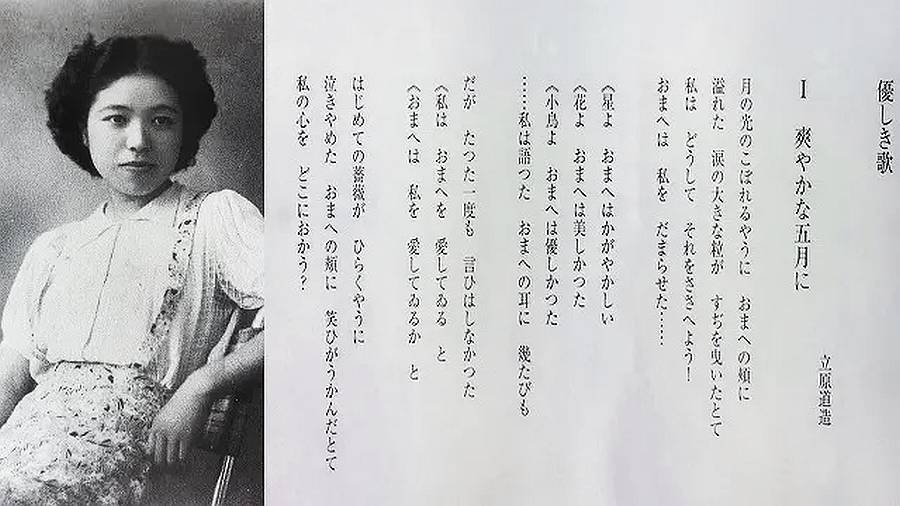 優しき歌
Ⅰ 爽やかな五月に
立原道造
月の光のこぼれるやうに おまへの頬に
溢れた 涙の大きな粒が すぢを曳いたとて
私は どうして それをささへよう!
おまへは 私を だまらせた……
《星よ おまへはかがやかしい
《花よ おまへは美しかつた
《小鳥よ おまへは優しかつた
……私は語つた おまへの耳に 幾たびも
だが たつた一度も 言ひはしなかつた
《私は おまへを 愛してゐる と
《おまへは 私を 愛してゐるか と
はじめての薔薇が ひらくやうに
泣きやめた おまへの頬に 笑ひがうかんだとて
私の心を どこにおかう?